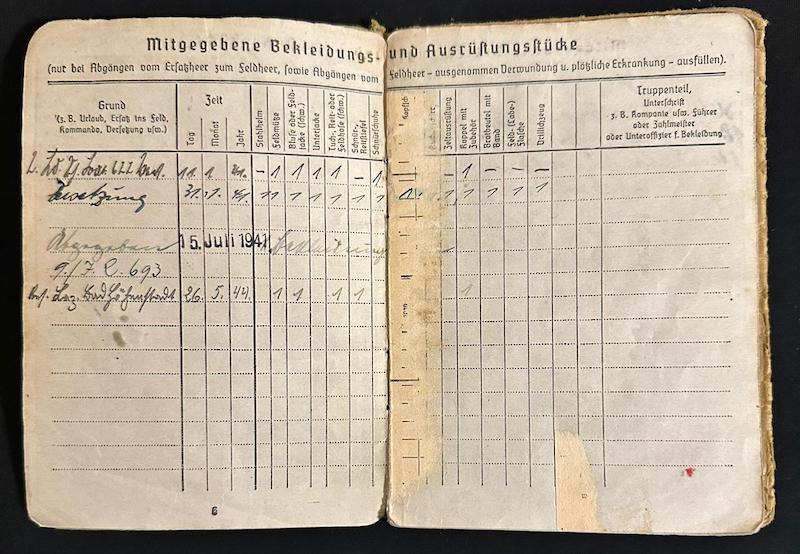 Mitgegebene Bekleidungs- und Ausrüstungsstücke
(nur bei Abgängen vom Ersatzheer zum Feldheer, sowie Abgängen vom Feldheer – ausgenommen Verwundung u. plötzliche Erkrankung – ausfüllen).
Grund
(z. B. Urlaub, Ersatz ins Feld,
Kommando, Versetzung usw.)
Zeit
Tag
Monat
Jahr
Stahlhelm
Feldmütze
Bluse oder Feld-
jacke (schw.)
Unterjacke
Tuch-, Reit- oder
Feldhose (schw.)
Schnür-,
Reitstiefel
Schnürschuhe
Kopfsch
Zeltausrüstung
Koppel mit
Zubehör
Brotbeutel mit
Band
Feld-(Labe-)
Flasche
Drillichzeug
Truppenteil,
Unterschrift
z. B. Kompanie usw. Führer
oder Zahlmeister
oder Unteroffizier f. Bekleidung
11. 1. 41. – 1 1 1 1 – 1 1 – – –
31. 1. 41. 1 1 1 1 1 1 1 1 1 1 1 1 1
Abgegeben 15. Juli 1941 Bekleidung
9./I. R. 693
Res. Laz. Bad Höhenstadt 26. 5. 44. 1 1 1 1 1
6